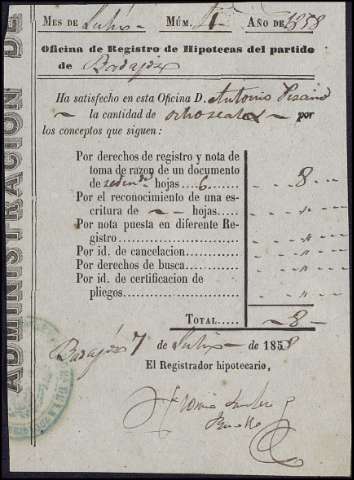 ADMINISTRACION DE
MES DE Julio NÚM. 1 AÑO DE 1858
Oficina de Registro de Hipotecas del partido
de Badajoz
Ha satisfecho en esta Oficina D. Antonio
la cantidad de ocho reales por
los conceptos que siguen:
Por derechos de registro y nota de
toma de razon de un documento
de hojas 6 8
Por el reconocimiento de una es-
critura de hojas. "
Por nota puesta en diferente Re-
gistro "
Por id. de cancelacion "
Por derechos de busca "
Por id. de certificacion de
pliegos "
TOTAL 8
Badajoz 7 de Julio de 1858
El Registrador hipotecario,